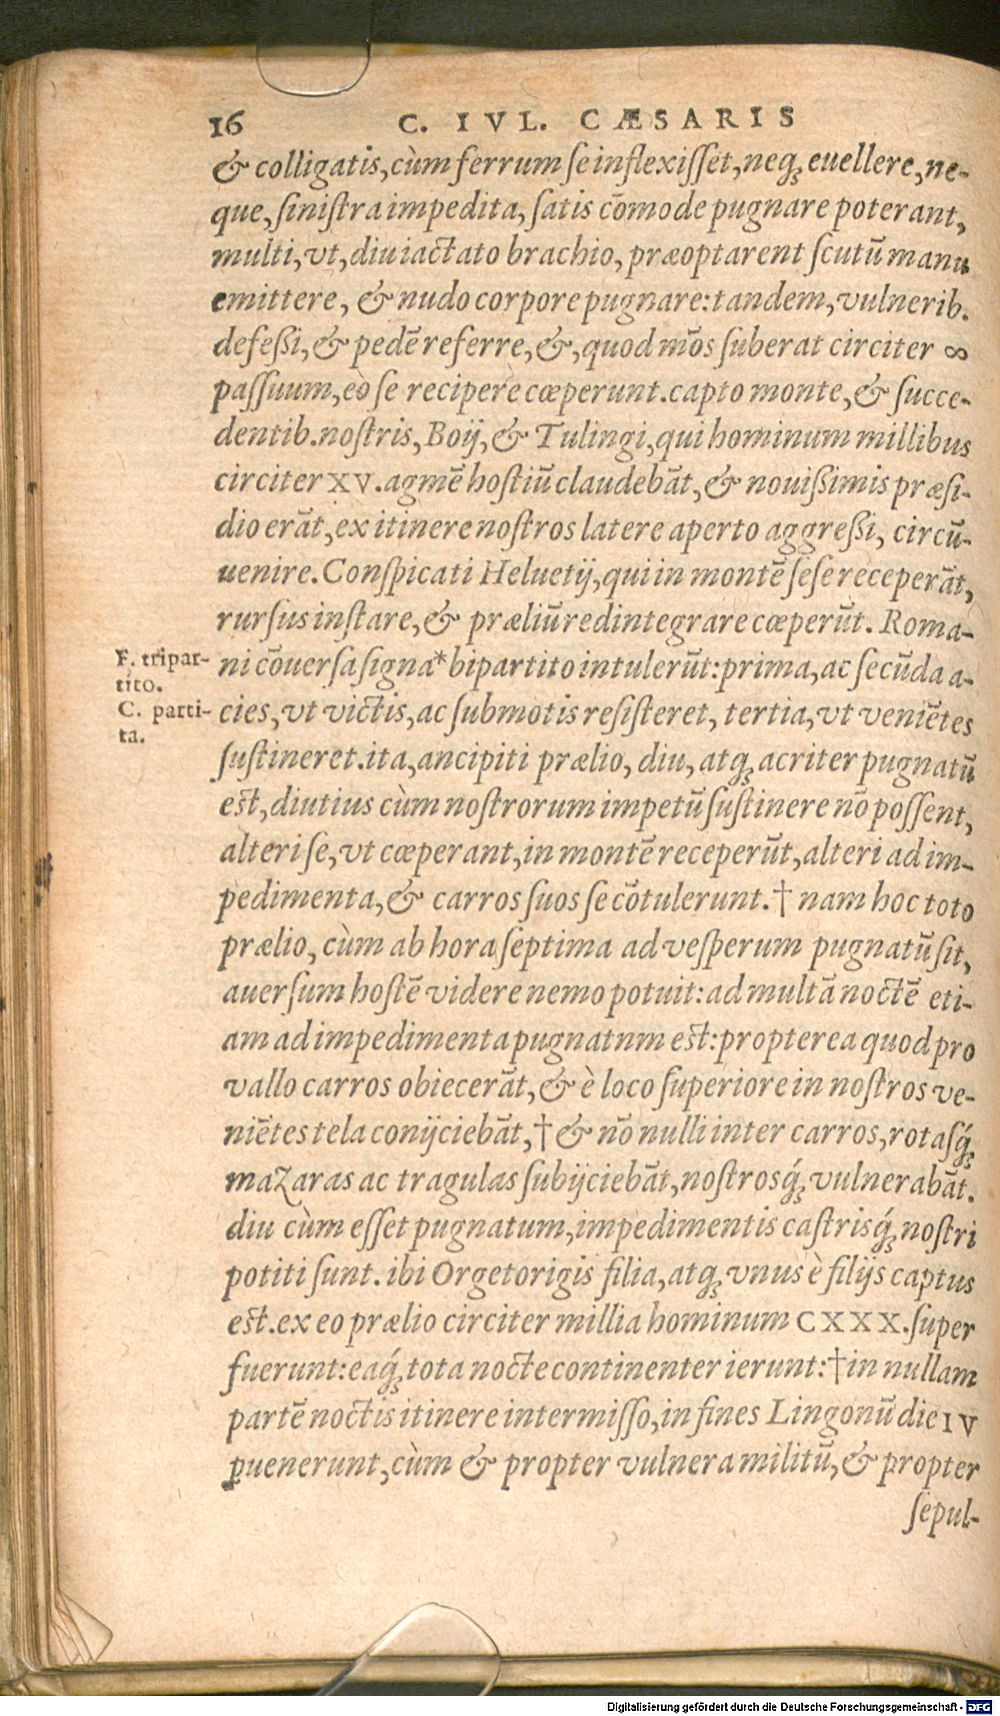 16 C. IVL. CÆSARIS
& colligatis, cùm ferrum se inflexisset, neqꝫ euellere, ne-
que, sinistra impedita, satis cōmode pugnare poterant,
multi, vt, diu iactato brachio, præoptarent scutū manu
emittere, & nudo corpore pugnare: tandem, vulnerib.
defeßi, & pedē referre, &, quod mōs suberat circiter ∞
passuum, eò se recipere cœperunt. capto monte, & succe-
dentib. nostris, Boij, & Tulingi, qui hominum millibus
circiter XV. agmē hostiū claudebāt, & nouißimis præsi-
dio erāt, ex itinere nostros latere aperto aggreßi, circū-
uenire. Conspicati Heluetij, qui in montē sese receperāt,
rursus instare, & præliū redintegrare cœperūt. Roma-
F. tripar-
tito.
ni cōuersa signa* bipartito intulerūt: prima, ac secūda a-
C. parti-
ta.
cies, vt victis, ac submotis resisteret, tertia, vt veniētes
sustineret. ita, ancipiti prælio, diu, atqꝫ acriter pugnatū
est, diutius cùm nostrorum impetū sustinere nō possent,
alteri se, vt cœperant, in montē receperūt, alteri ad im-
pedimenta, & carros suos se cōtulerunt. † nam hoc toto
prælio, cùm ab hora septima ad vesperum pugnatū sit,
auersum hostē videre nemo potuit: ad multā noctē eti-
am ad impedimenta pugnatnm est: propterea quod pro
vallo carros obiecerāt, & è loco superiore in nostros ve-
niētes tela conijciebāt, † & nō nulli inter carros, rotasqꝫ́
mazaras ac tragulas subijciebāt, nostrosqꝫ́ vulnerabāt.
diu cùm esset pugnatum, impedimentis castrisqꝫ́ nostri
potiti sunt. ibi Orgetorigis filia, atqꝫ vnus è filijs captus
est. ex eo prælio circiter millia hominum CXXX. super
fuerunt: eaqꝫ́ tota nocte continenter ierunt: † in nullam
partē noctis itinere intermisso, in fines Lingonū die IV
ꝑuenerunt, cùm & propter vulnera militū, & propter
sepul-
Digitalisierung gefördert durch die Deutsche Forschungsgemeinschaft - DFG